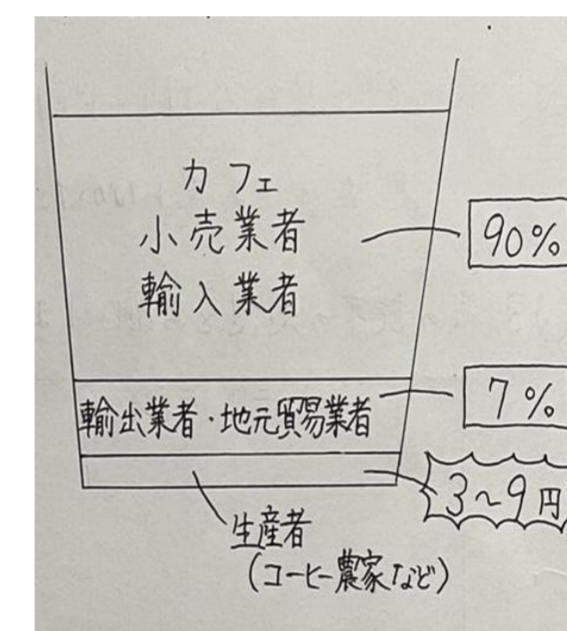 カフェ
小売業者
輸入業者
90%
輸出業者・地元貿易業者
7%
3〜9円
生産者
(コーヒー農家など)